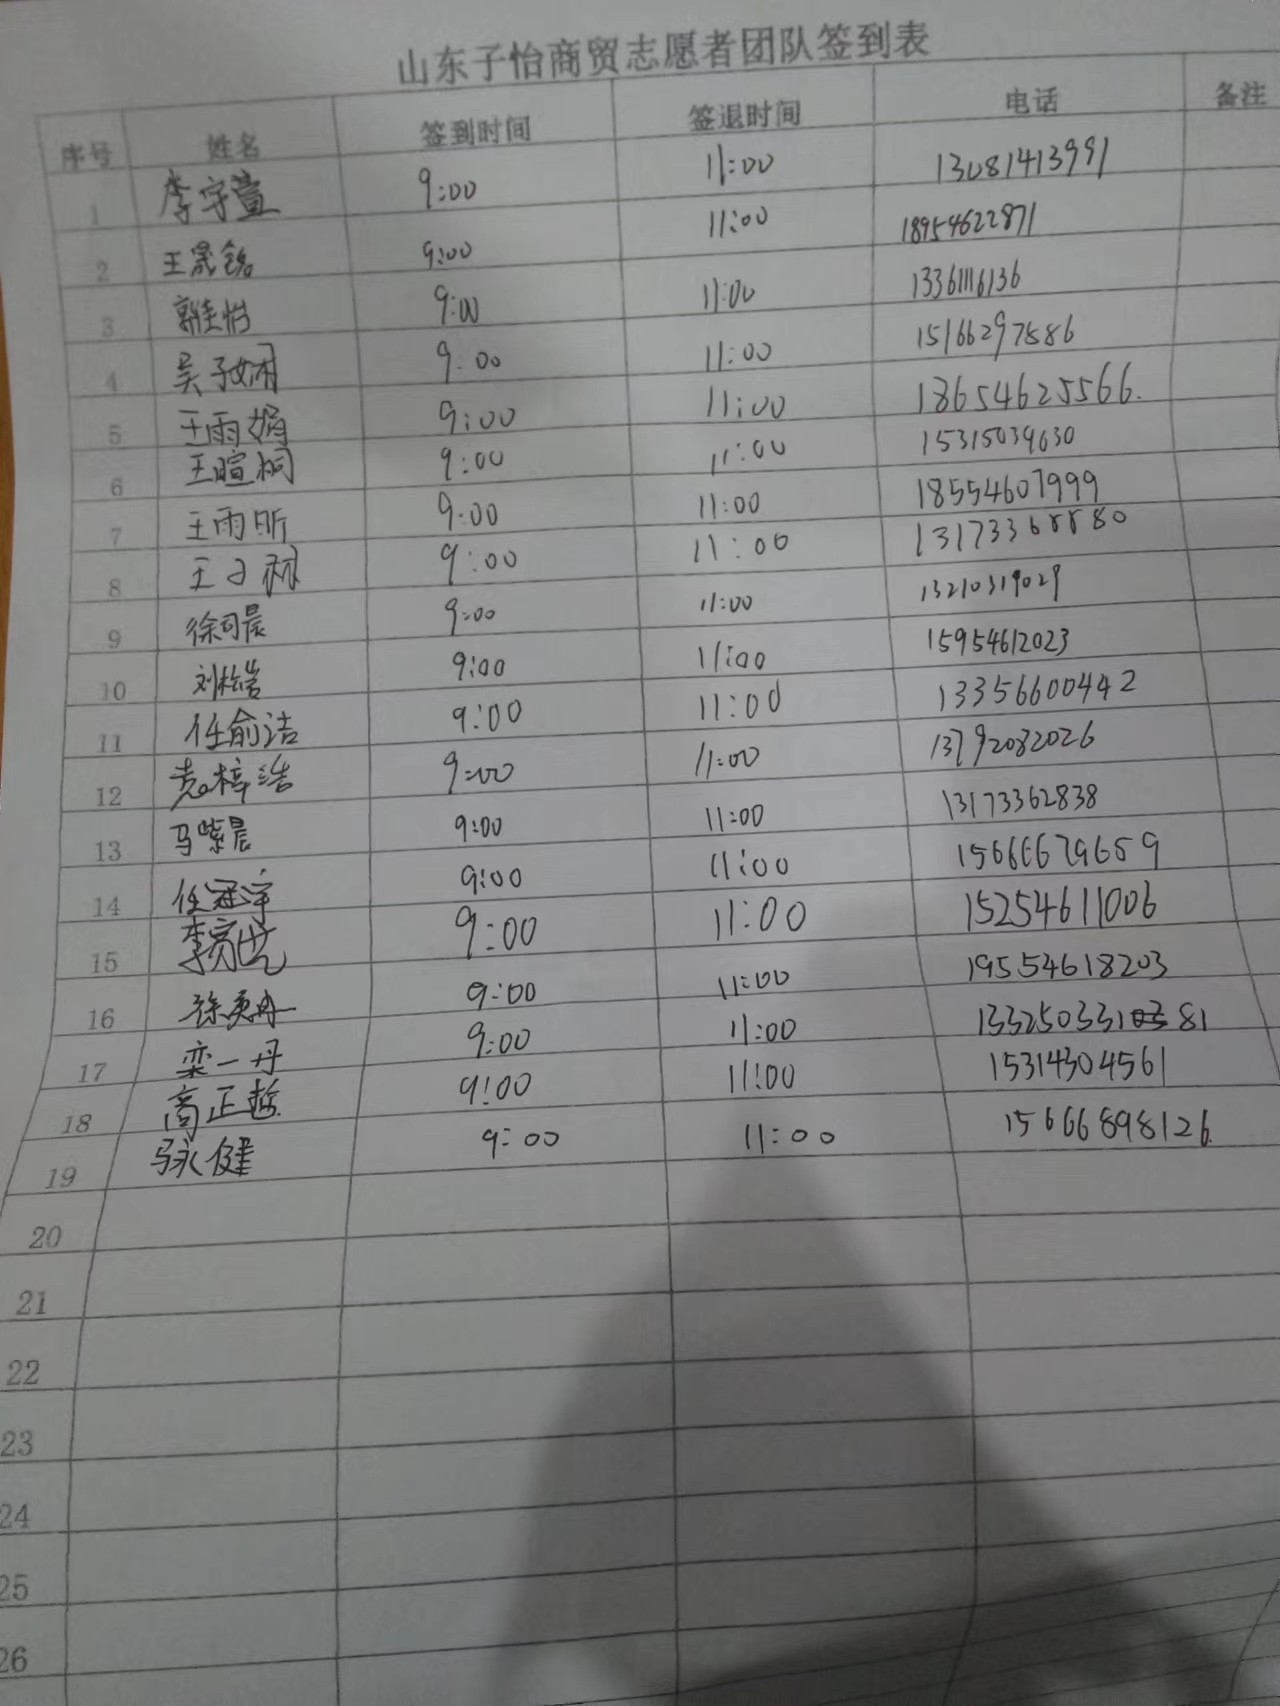 山东子怡商贸志愿者团队签到表
序号 姓名 签到时间 签退时间 电话 备注
1 李宇萱 9:00 11:00 13081413991
2 王晟铭 9:00 11:00 18954622871
3 郭佳怡 9:00 11:00 13361116136
4 吴子娴 9:00 11:00 15166297586
5 王雨娟 9:00 11:00 18654625566.
6 王暄桐 9:00 11:00 15315039630
7 王雨昕 9:00 11:00 18554607999
8 王子 9:00 11:00 13173368880
9 徐司晨 9:00 11:00 13210319029
10 刘松皓 9:00 11:00 15954612023
11 任俞洁 9:00 11:00 13356600442
12 袁梓浩 9:00 11:00 13792082026
13 马紫晨 9:00 11:00 13173362838
14 任冠宇 9:00 11:00 15666679659
15 李 9:00 11:00 15254611006
16 徐 9:00 11:00 19554618203
17 栾一丹 9:00 11:00
18 高正哲 9:00 11:00 15314304561
19 永健 9:00 11:00 15666898126.
20
21
22
23
24
25
26